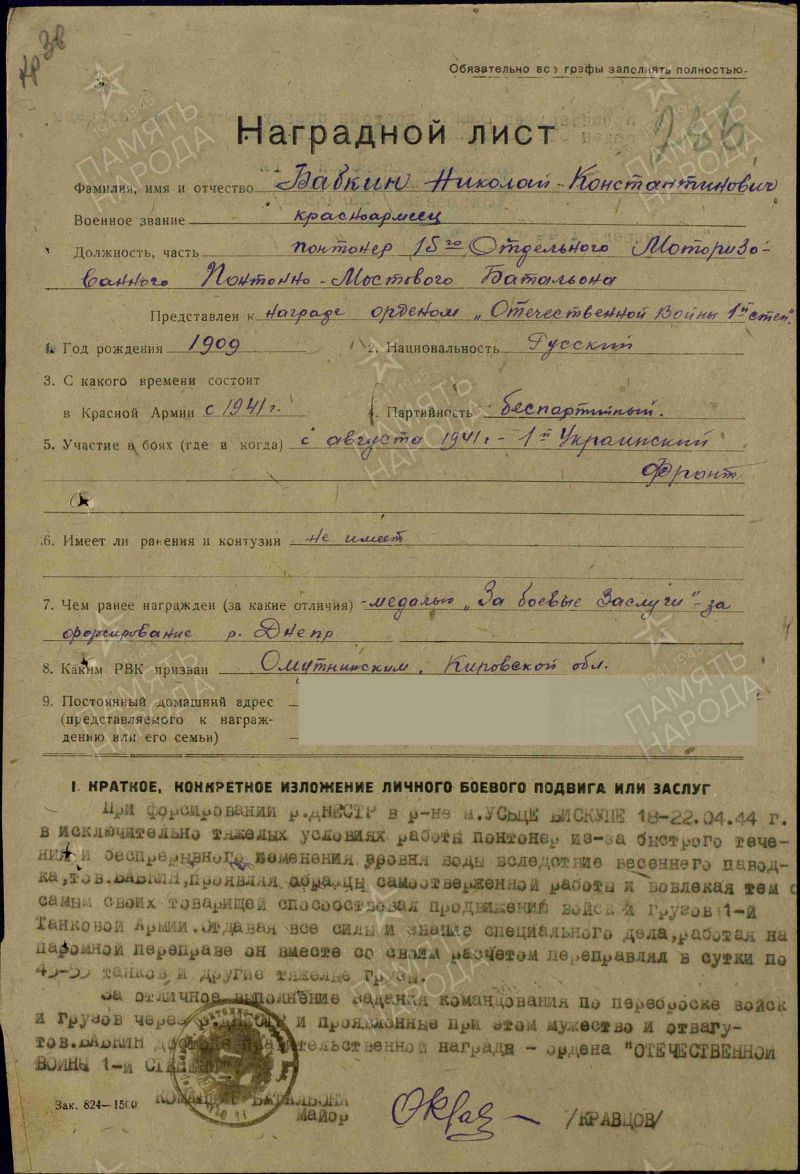 Кр 3в
Обязательно все графы заполнять полностью.
Наградной лист
Фамилия, имя и отчество Бабкин Николай Константинович
Военное звание красноармеец
Должность, часть понтонер 15го Отдельного Моторизо-
ванного Понтонно-Мостового Батальона
Представлен к награде орденом „Отечественной Войны 1й степ".
1. Год рождения 1909 2. Национальность Русский
3. С какого времени состоит
в Красной Армии с 1941 г. 4. Партийность беспартийный.
5. Участие в боях (где и когда) с августа 1941 г. - 1й Украинский
Фронт
6. Имеет ли ранения и контузии не имеет
7. Чем ранее награжден (за какие отличия) - медалью „За боевые Заслуги" - за
форсирование р. Днепр
8. Каким РВК призван Омутнинским, Кировской обл.
9. Постоянный домашний адрес
(представляемого к награж-
дению или его семьи)
I. КРАТКОЕ, КОНКРЕТНОЕ ИЗЛОЖЕНИЕ ЛИЧНОГО БОЕВОГО ПОДВИГА ИЛИ ЗАСЛУГ
При форсировании р.ДНЕСТР в р-не м.УСЬЦЕ БИСКУПЕ 18-22.04.44 г.
в исключительно тяжелых условиях работы понтонер из-за быстрого тече-
ния и беспрерывного изменения уровня воды вследствие весеннего павод-
ка,тов.БАБКИН,проявляя образцы самоотверженной работы и вовлекая тем с
самым своих товарищей способствовал продвижению войск и грузов 1-й
Танковой Армии.Отдавая все силы и знание специального дела,работая на
паромной переправе он вместе со своим расчетом переправлял в сутки по
45-50 танков и другие тяжелые грузы.
За отличное выполнение задания командования по переброске войск
и грузов через р.ДНЕСТР и проявленные при этом мужество и отвагу-
тов.БАБКИН правительственной награды - ордена "ОТЕЧЕСТВЕННОЙ
ВОЙНЫ 1-й СТЕПЕНИ
КОМАНДИР БАТАЛЬОНА
Зак. 824—1500.
майор /КРАВЦОВ/
ПАМЯТЬ НАРОДА
1941-1945